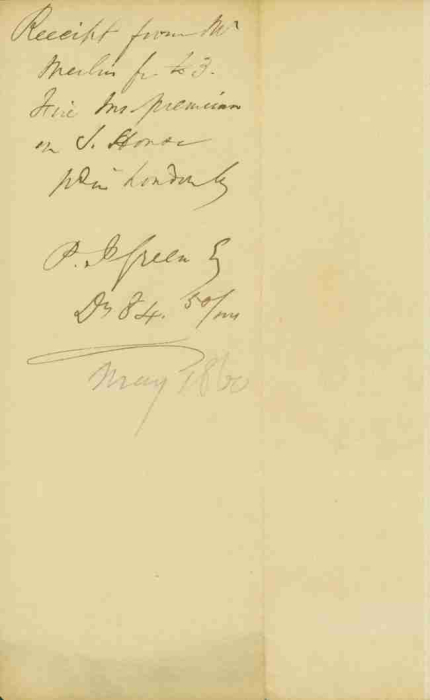 Receipt from Mr
Merlin for £ 3.
Fire Ins. premium
on S. House
in London by
P. J. Green Esq
Drs 84. 50/100
May 1860